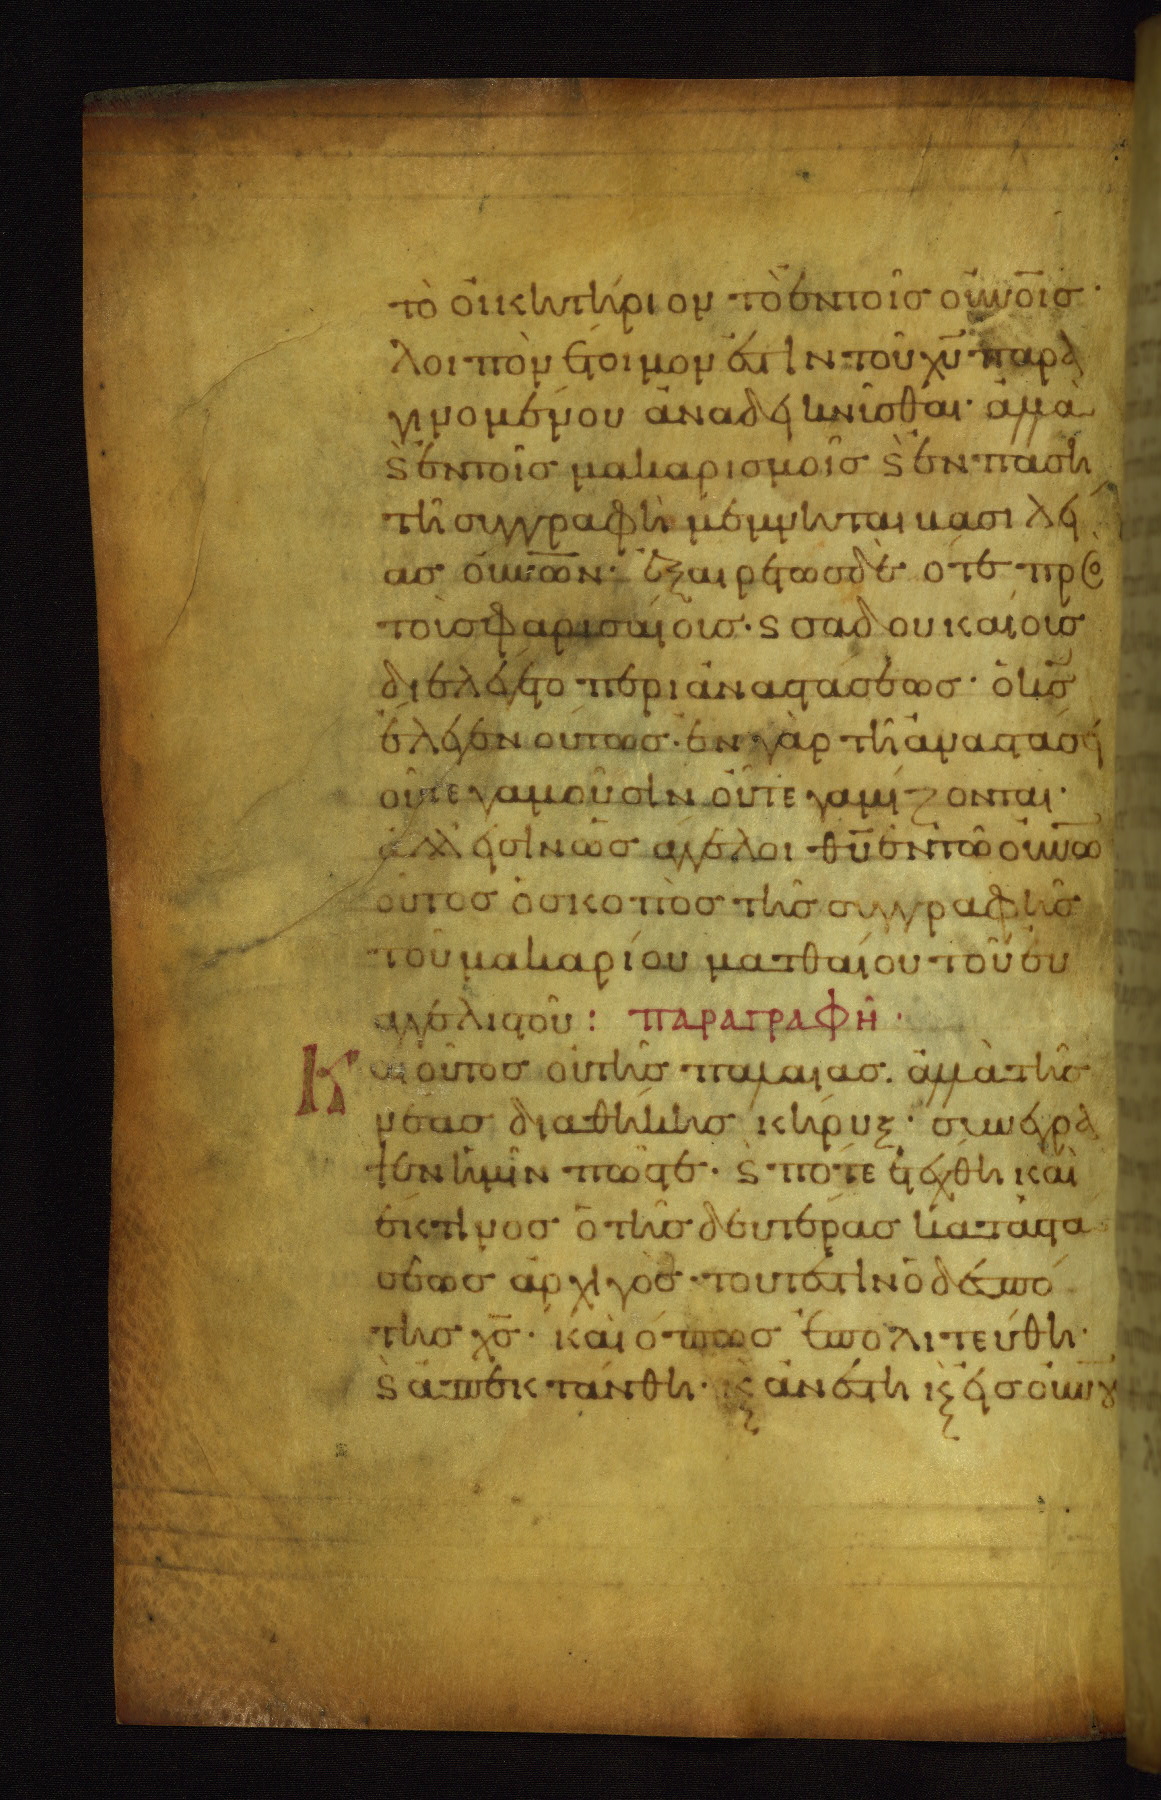 τὸ οἰκητήριον τὸ ἐν τοῖς οὐνοῖς·
λοιπὸν ἕτοιμον ἐστὶν τοῦ χυ παρα
γινομένου ἀναδεικνῖσθαι· ἀλλὰ
ϛ ἐν τοῖς μακαρισμοῖς ϛ ἐν πάση
τῆ συγγραφῆ μέμνηται βασιλεί
ας οὐνῶν· ἐξαιρέτως δὲ ὅτε πρὸ
τοὺς φαρισαίοις· ϛ σαδουκαίοις
διελέγετο περὶ ἀναστάσεως· ὁ κς
ἔλεγεν οὕτως· ἐν γὰρ τῆ ἀναστάσει
οὔτε γαμοῦσιν οὔτε γαμίζονται·
ἀλλ εἰσὶν ὡς ἄγγελοι θυ ἐν τῶ οὐνῶ
οὗτος ὁ σκοπὸς τῆς συγγραφῆς
τοῦ μακαρίου ματθαίου τοῦ εὐ
αγγελιστοῦ: ΠΑΡΑΓΡΑΦΗ·
Καὶ οὗτος οὐ τῆς παλαιας. ἀλλὰ τῆς
νέας διαθήκης κήρυξ· συνέγρα
ψεν ἡμῖν πῶς τε· ϛ πότε ἐτέχθη καὶ
ἐκ τίνος ὁ τῆς δευτέρας καταστα
σέως ἀρχιγὸς· τουτέστιν ὁ δεσπό
της χς· καὶ ὅπως ἐπολιτεύθη·
ϛ ἀπεκτάνθη· κ ἀνέστη κ εἰς οὐνου